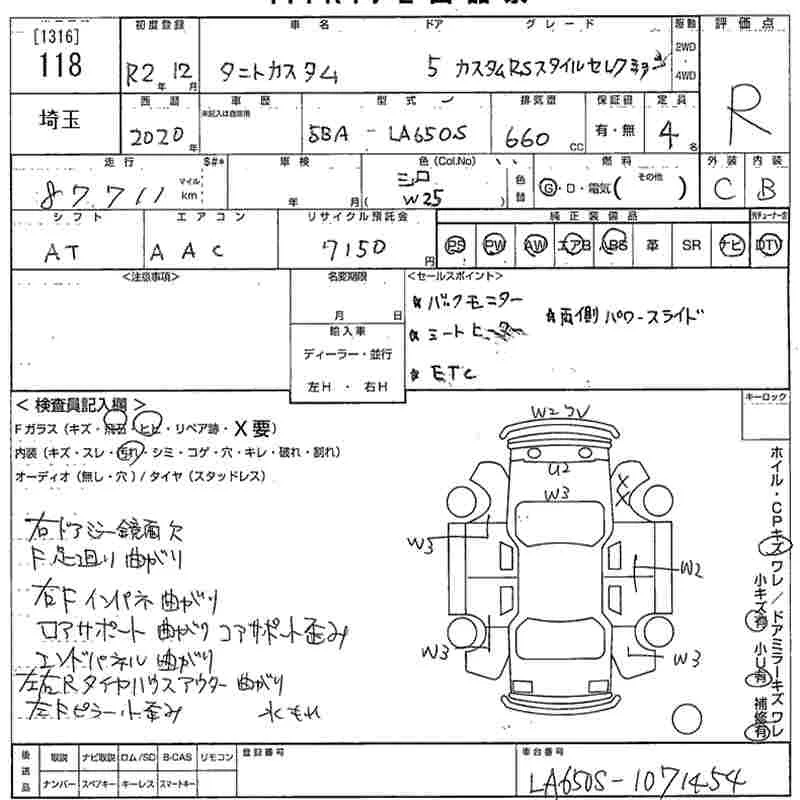 [1316]
118
初度登録
R2年12月
車名
タントカスタム
ドア
5
グレード
カスタムRSスタイルセレクション
駆動
2WD
・
4WD
評価点
R
埼玉
西暦
2020年
車歴
未記入は自家用
型式
5BA - LA650S
排気量
660cc
保証書
有・無
定員
4名
走行
87,711
マイル
km
S#*
車検
年 月
色(Col.No)
シロ
( W25 )
色替
燃料
G・D・電気( その他 )
外装
C
内装
B
シフト
AT
エアコン
AAC
リサイクル預託金
7150円
純正装備品
PS PW AW エアB ABS 革 SR ナビ DTV
<注意事項>
名変期限
月 日
輸入車
ディーラー・並行
左H ・ 右H
<セールスポイント>
☆バックモニター
☆両側パワースライド
☆シートヒーター
☆ETC
<検査員記入欄>
Fガラス(キズ・飛石・ヒビ・リペア跡・X要)
内装(キズ・スレ・汚れ・シミ・コゲ・穴・キレ・破れ・割れ)
オーディオ(無し・穴)/タイヤ(スタッドレス)
キーロック
右ドアミラー鏡面欠
F足廻り曲がり
右Fインパネ曲がり
ロアサポート曲がり コアサポート歪み
エンドパネル曲がり
左右Rタイヤハウスアウター曲がり
左Fピラー歪み 水もれ
W2
U2
W3
X
X
W3
W2
W3
W3
ホイル・CPキズ ワレ / ドアミラーキズ ワレ
小キズ有 小U有 補修有
後送品
取説 ナビ取説 ロム/SD B-CAS リモコン
ナンバー スペアキー キーレス スマートキー
登録番号
車台番号
LA650S-1071454